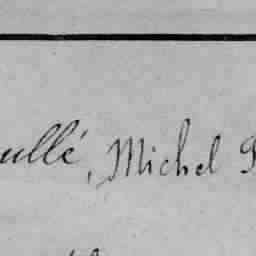 ullé, Michel